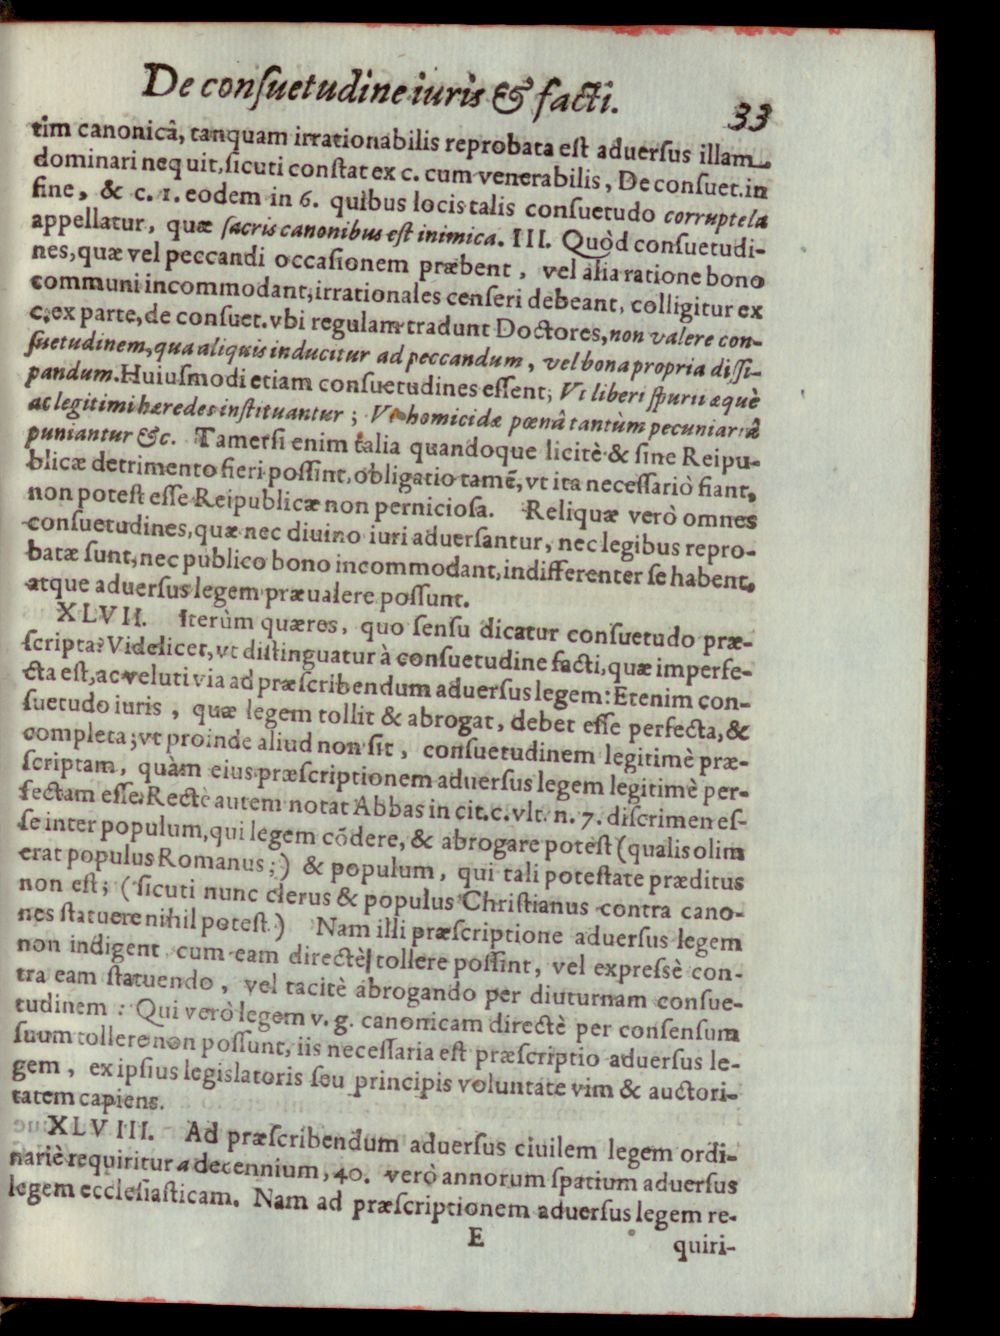 De consuetudine iuris & facti. 33
tim canonicâ, tanquam irrationabilis reprobata est aduersus illam
dominari nequit, sicuti constat ex c. cum venerabilis, De consuet. in
fine, & c. 1. eodem in 6. quibus locis talis consuetudo corruptela
appellatur, quæ sacris canonibus est inimica. III. Quòd consuetudi-
nes, quæ vel peccandi occasionem præbent, vel alia ratione bono
communi incommodant, irrationales censeri debeant, colligitur ex
c. ex parte, de consuet. vbi regulam tradunt Doctores, non valere con-
suetudinem, qua aliquis inducitur ad peccandum, vel bona propria dissi-
pandum. Huiusmodi etiam consuetudines essent; Vt liberi spurii æquè
ac legitimi hæredes instituantur; Vt homicidæ pœnâ tantùm pecuniariâ
puniantur &c. Tametsi enim talia quandoque licitè & sine Reipu-
blicæ detrimento fieri possint, obligatio tamẽ, vt ita necessariò fiant,
non potest esse Reipublicæ non perniciosa. Reliquæ verò omnes
consuetudines, quæ nec diuino iuri aduersantur, nec legibus repro-
batæ sunt, nec publico bono incommodant, indifferenter se habent,
atque aduersus legem præualere possunt.
XLVII. Iterùm quæres, quo sensu dicatur consuetudo præ-
scripta? Videlicet, vt distinguatur à consuetudine facti, quæ imperfe-
cta est, ac veluti via ad præscribendum aduersus legem: Etenim con-
suetudo iuris, quæ legem tollit & abrogat, debet esse perfecta, &
completa; vt proinde aliud non sit, consuetudinem legitimè præ-
scriptam, quàm eius præscriptionem aduersus legem legitimè per-
fectam esse. Rectè autem notat Abbas in cit. c. vlt. n. 7. discrimen es-
se inter populum, qui legem cõdere, & abrogare potest (qualis olim
erat populus Romanus;) & populum, qui tali potestate præditus
non est; (sicuti nunc clerus & populus Christianus contra cano-
nes statuere nihil potest.) Nam illi præscriptione aduersus legem
non indigent cum eam directè tollere possint, vel expressè con-
tra eam statuendo, vel tacitè abrogando per diuturnam consue-
tudinem: Qui verò legem v. g. canonicam directè per consensum
suum tollere non possunt, iis necessaria est præscriptio aduersus le-
gem, ex ipsius legislatoris seu principis voluntate vim & auctori-
tatem capiens.
XLVIII. Ad præscribendum aduersus ciuilem legem ordi-
nariè requiritur a decennium, 40. verò annorum spatium aduersus
legem ecclesiasticam. Nam ad præscriptionem aduersus legem re-
E quiri-